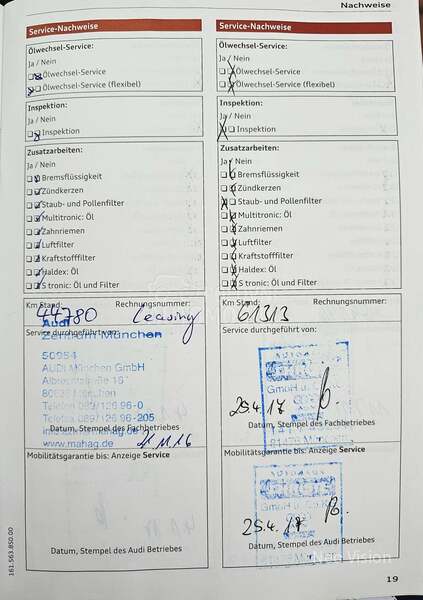 Nachweise
Service-Nachweise
Ölwechsel-Service:
Ja / Nein
Ölwechsel-Service
Ölwechsel-Service (flexibel)
Inspektion:
Ja / Nein
Inspektion
Zusatzarbeiten:
Ja / Nein
Bremsflüssigkeit
Zündkerzen
Staub- und Pollenfilter
Multitronic: Öl
Zahnriemen
Luftfilter
Kraftstofffilter
Haldex: Öl
S tronic: Öl und Filter
Km Stand: Rechnungsnummer:
44780 Leasing
Service durchgeführt von:
Audi
Zentrum München
50954
AUDI München GmbH
Telefon 089/126 96-0
Telefax 089/126 96-205
Datum, Stempel des Fachbetriebes
www.mahag.de 21.11.16
Mobilitätsgarantie bis: Anzeige Service
Datum, Stempel des Audi Betriebes
Service-Nachweise
Ölwechsel-Service:
Ja / Nein
Ölwechsel-Service
Ölwechsel-Service (flexibel)
Inspektion:
Ja / Nein
Inspektion
Zusatzarbeiten:
Ja / Nein
Bremsflüssigkeit
Zündkerzen
Staub- und Pollenfilter
Multitronic: Öl
Zahnriemen
Luftfilter
Kraftstofffilter
Haldex: Öl
S tronic: Öl und Filter
Km Stand: Rechnungsnummer:
61313
Service durchgeführt von:
25.4.17
Datum, Stempel des Fachbetriebes
Mobilitätsgarantie bis: Anzeige Service
25.4.17
Datum, Stempel des Audi Betriebes
161.563.850.00
19